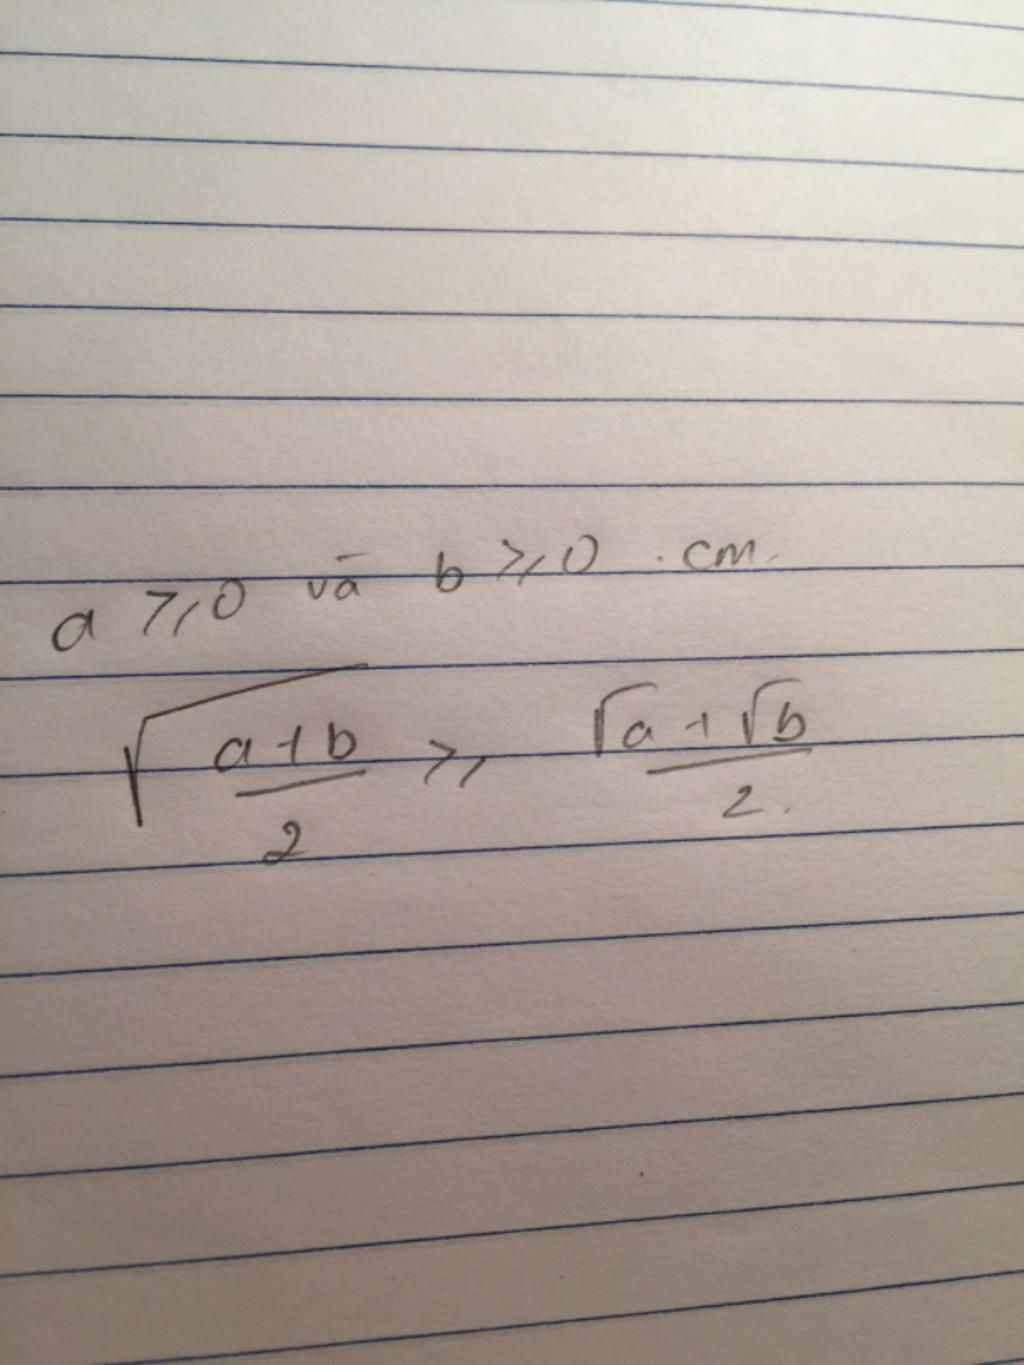 a ⩾ 0 và b ⩾ 0 . cm.
√(a+b)/2 ⩾ (√a + √b)/2.